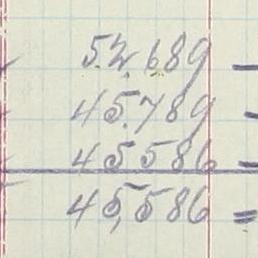 52,689 -
45.789 -
45586 -
45,586 =